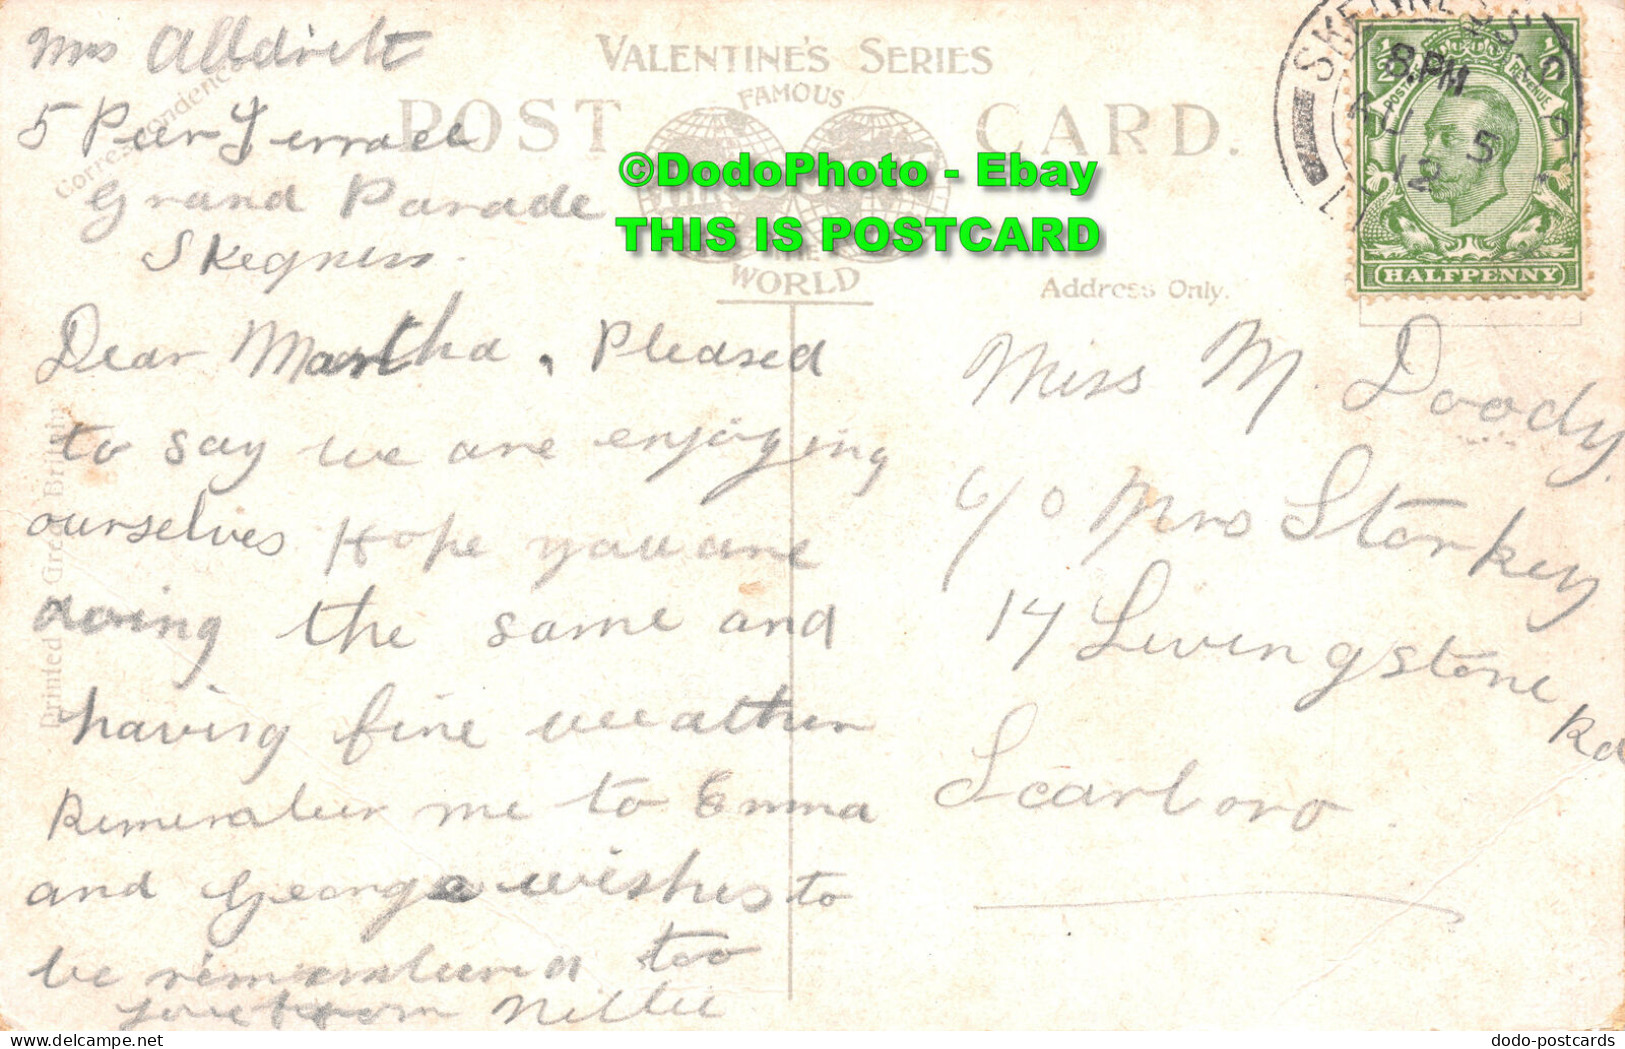 Mrs Alldritt
5 Peir Terrace
Grand Parade
Skegness.
Correspondence
VALENTINE'S SERIES
FAMOUS
POST CARD.
WORLD
©DodoPhoto - Ebay
THIS IS POSTCARD
Address Only.
SKEGNESS
8.PM
5
12
POSTAGE REVENUE
1/2 1/2
HALFPENNY
Dear Martha, Pleased
to say we are enjoying
ourselves Hope you are
doing the same and
having fine weather
Remember me to Emma
and George wishes to
be remembered too
love from Nellie
Printed Great Britain
Miss M Doody.
c/o Mrs Starkey
14 Livingstone Rd
Scarboro
delcampe.net
dodo-postcards